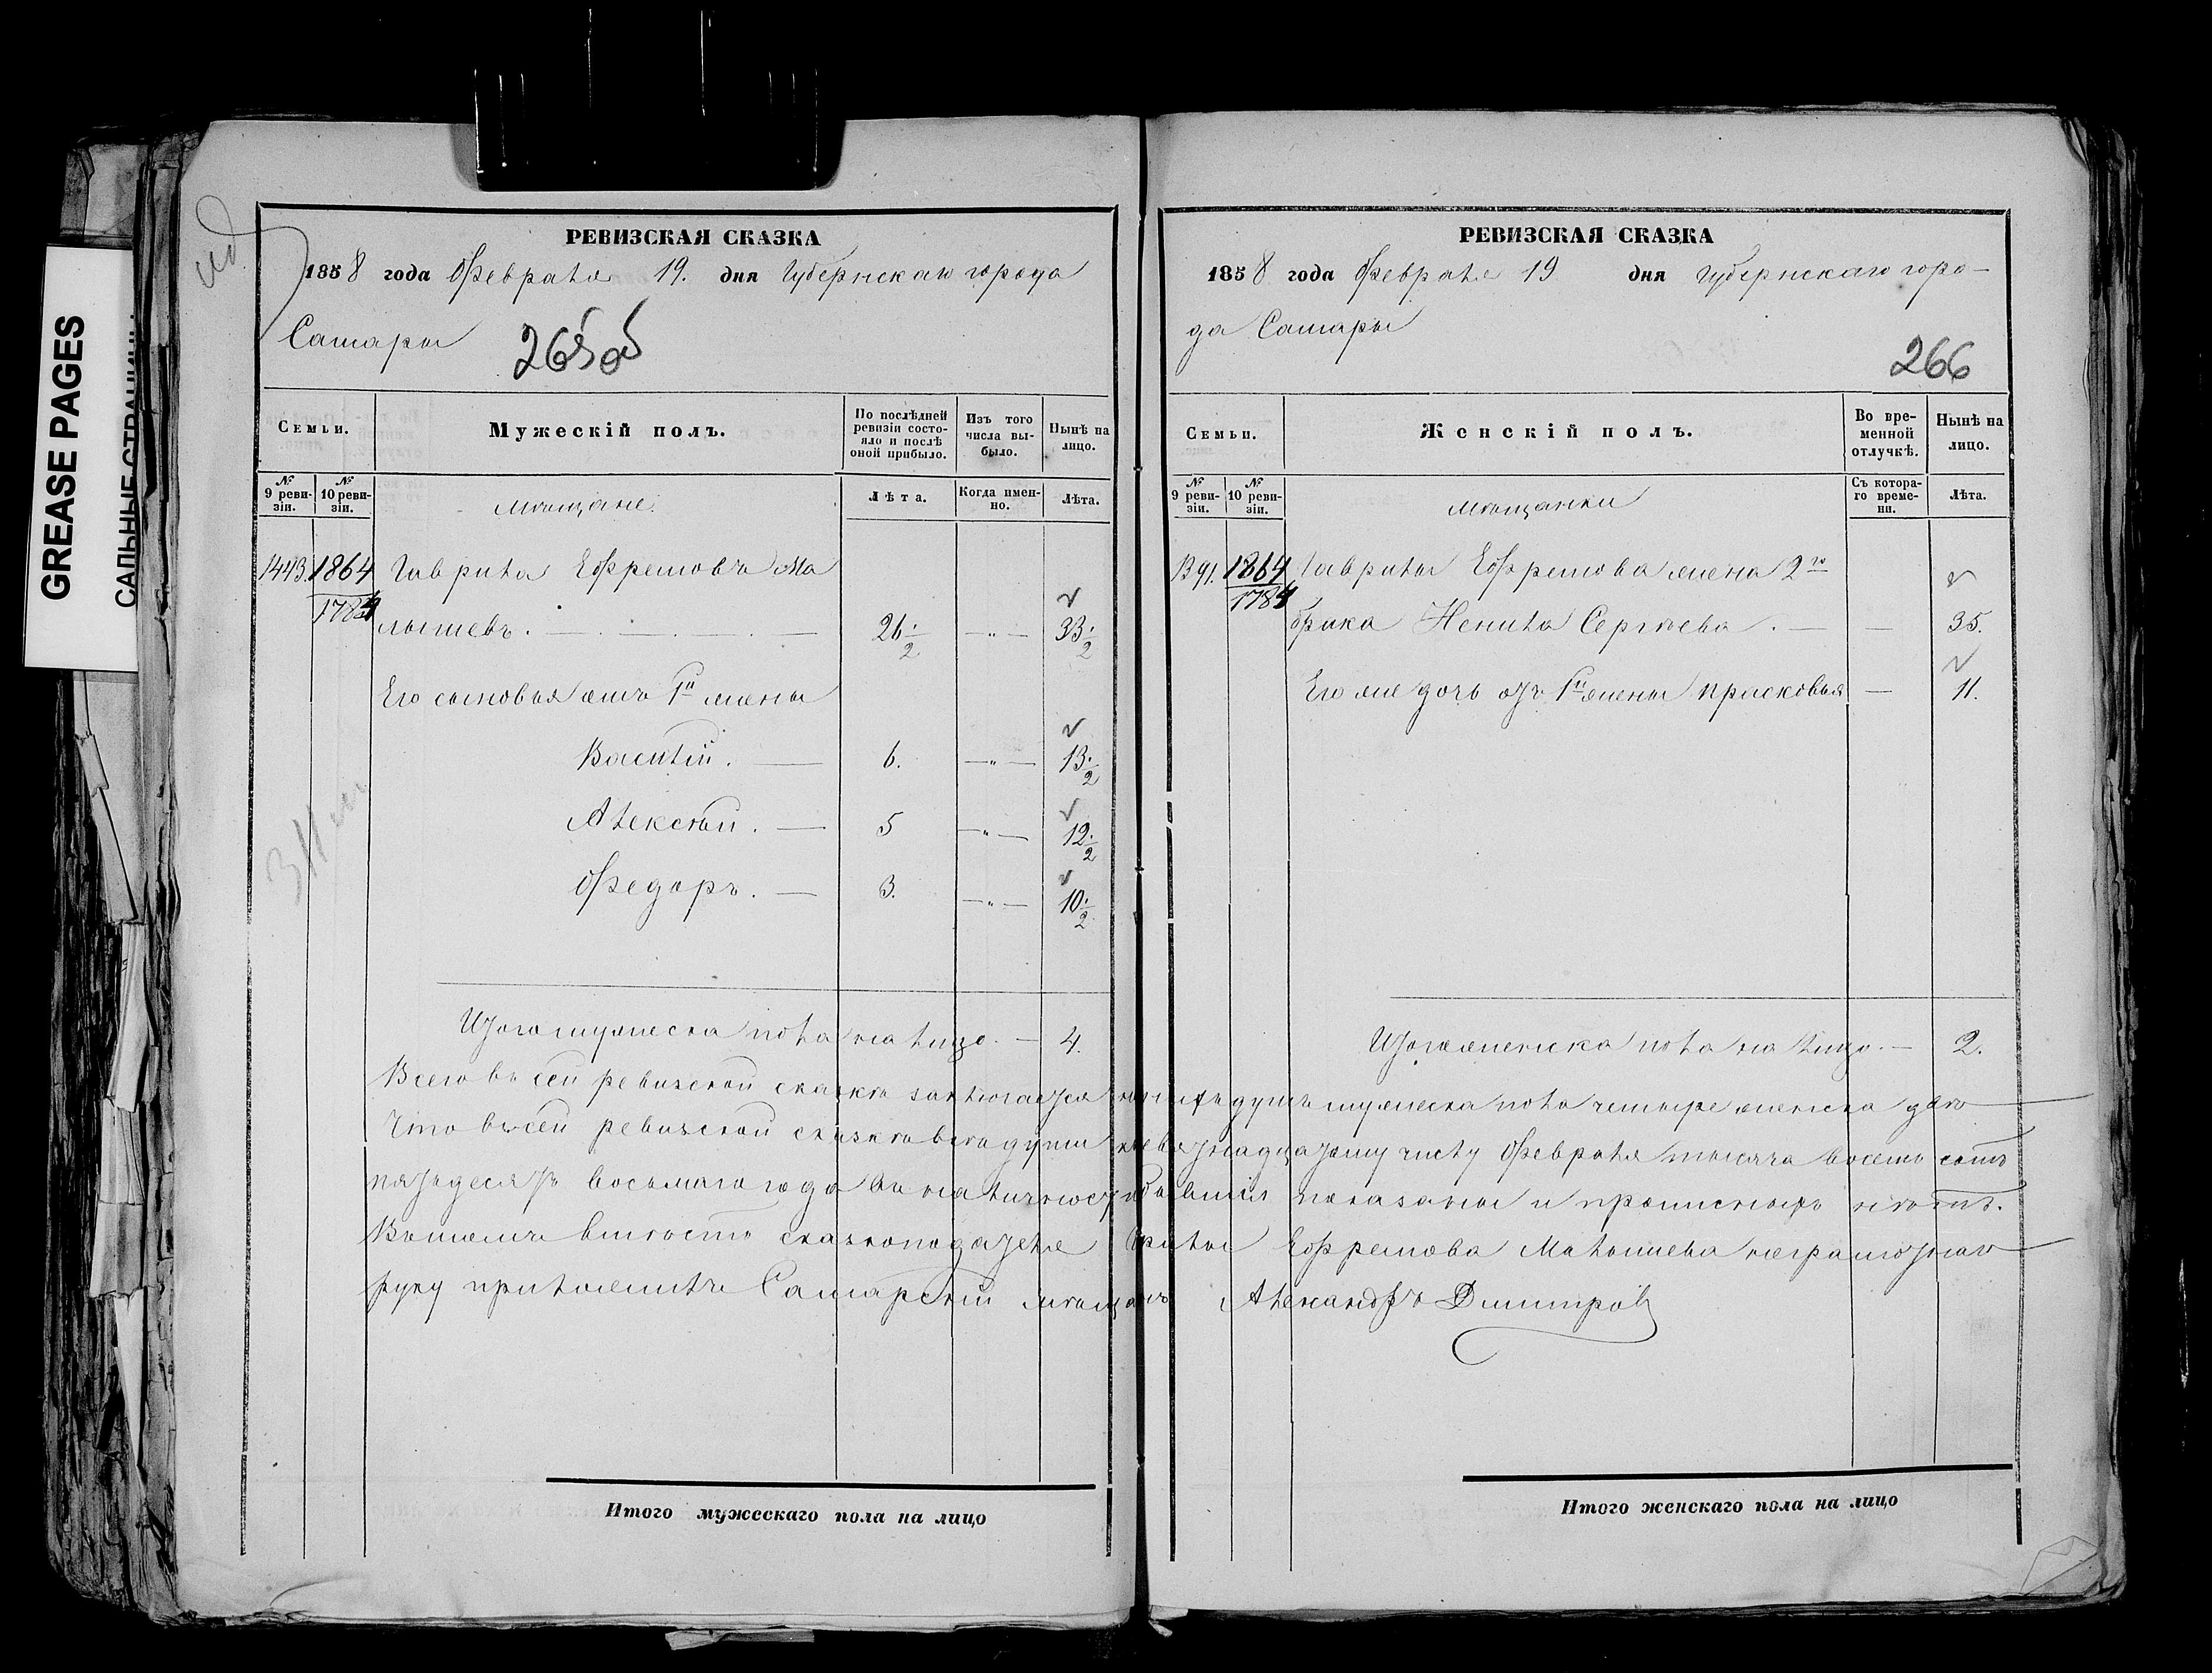 GREASE PAGES
САЛЬНЫЕ СТРАНИЦЫ
РЕВИЗСКАЯ СКАЗКА
1858 года Февраля 19. дня Губернскаго города
Самары
265об
Семьи.
Мужескій полъ.
По послѣдней ревизіи состояло и послѣ оной прибыло.
Изъ того числа выбыло.
Нынѣ на лицо.
№ 9 ревизіи.
№ 10 ревизіи.
Мѣщане.
Лѣта.
Когда именно.
Лѣта.
1443. 1864 Гаврила Ефремовъ Ма
1784 лышевъ. 26 1/2 —„— 33 1/2
Его сыновья отъ 1й жены
Василій. — 6. —„— 13 1/2
Алексѣй. — 5 —„— 12 1/2
Федоръ. — 3. —„— 10 1/2
Итого мужеска пола на лицо. — 4.
Итого мужескаго пола на лицо
РЕВИЗСКАЯ СКАЗКА
1858 года Февраля 19 дня Губернскаго горо-
да Самары
266
Семьи.
Женскій полъ.
Во временной отлучкѣ.
Нынѣ на лицо.
№ 9 ревизіи.
№ 10 ревизіи.
Мѣщанки
Съ котораго времени.
Лѣта.
1391. 1864 Гаврилы Ефремова жена 2го
1784 брака Ненила Сергѣева. — — 35.
Его же дочь отъ 1й жены Прасковья — 11.
Итого женска пола на лицо. — 2.
Всего въ сей ревизской сказкѣ заключается душъ мужеска пола четыре женска двѣ
Что въ сей ревизской сказкѣ всѣ души къ девятнадцатому числу Февраля тысяча восемь сотъ
пятьдесятъ восьмаго года въ наличности бывшія показаны и прописныхъ нѣтъ.
Въ томъ вмѣсто сказкоподателя Гаврилы Ефремова Малышева неграмотнаго
руку приложилъ Самарскій мѣщанинъ Александръ Дмитровъ
Итого женскаго пола на лицо